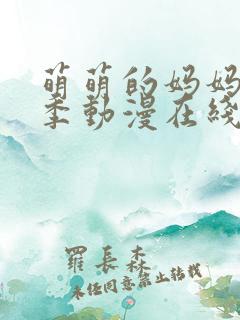 萌萌的妈妈
季動漫在綫
羅長森
未任同意禁止转载